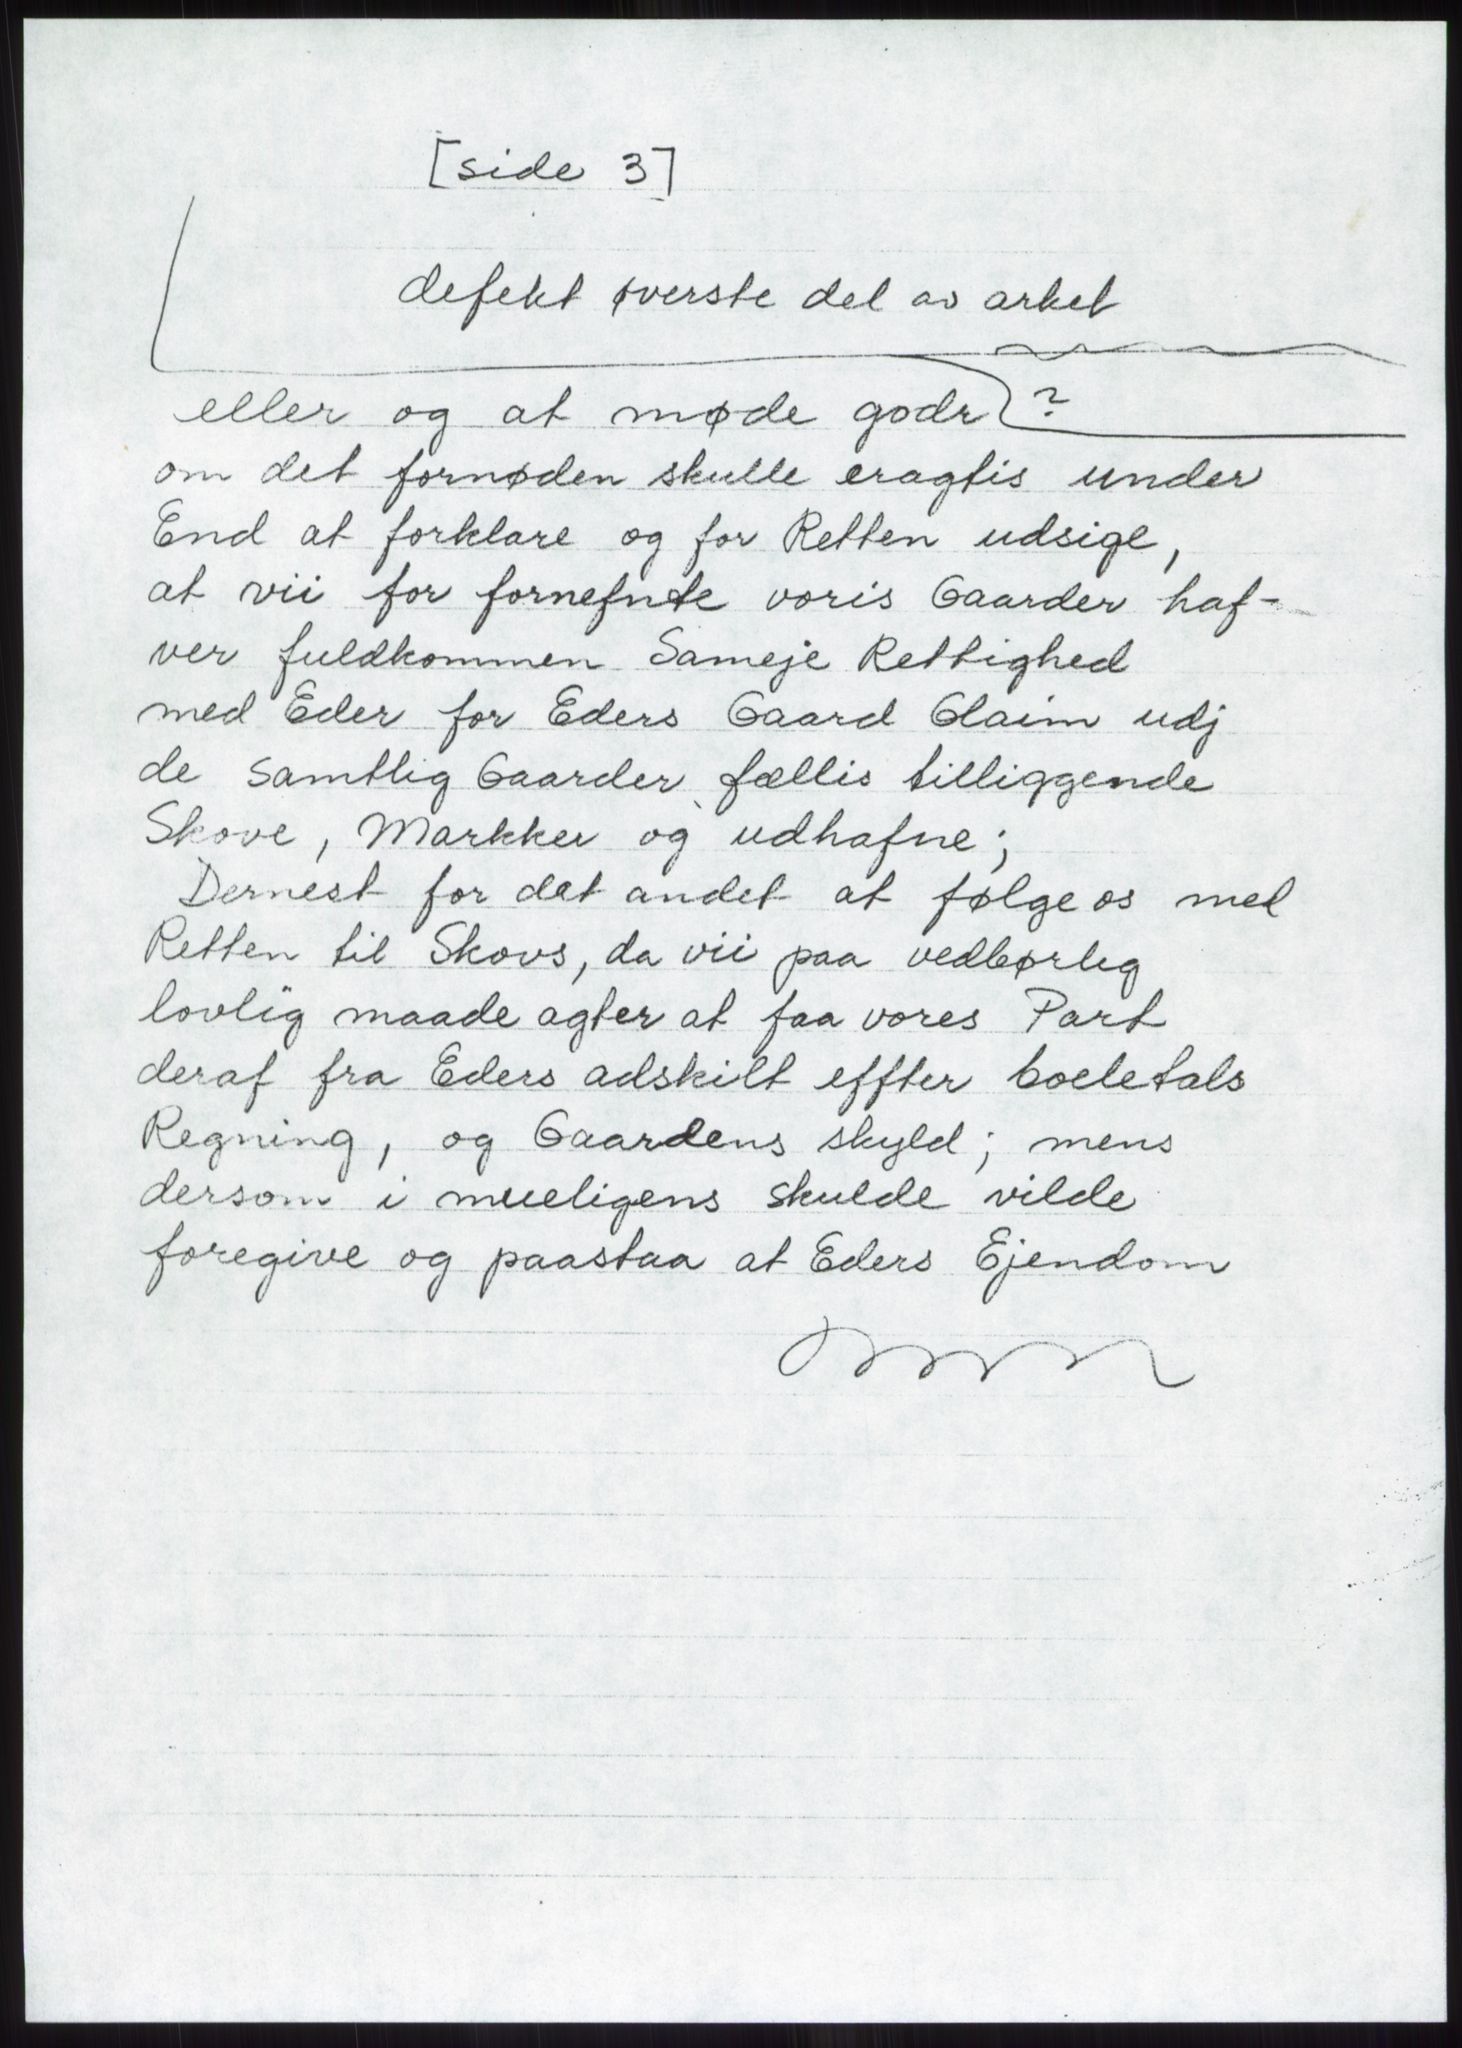 [side 3]
defekt øverste del av arket
eller og at møde godr ?
om det fornøden skulle eragtis under
End at forklare og for Retten udsige,
at vii for fornefnte voris Gaarder haf-
ver fuldkommen Sameje Rettighed
med Eder for Eders Gaard Glaim udj
de samtlig Gaarder fællis tilliggende
Skove, Markker og udhafne;
Dernest for det andet at følge os med
Retten til Skovs, da vii paa vedbørlig
lovlig maade agter at faa vores Part
deraf fra Eders adskilt effter boeletals
Regning, og Gaardens skyld; mens
dersom i mueligens skulde vilde
foregive og paastaa at Eders Ejendom